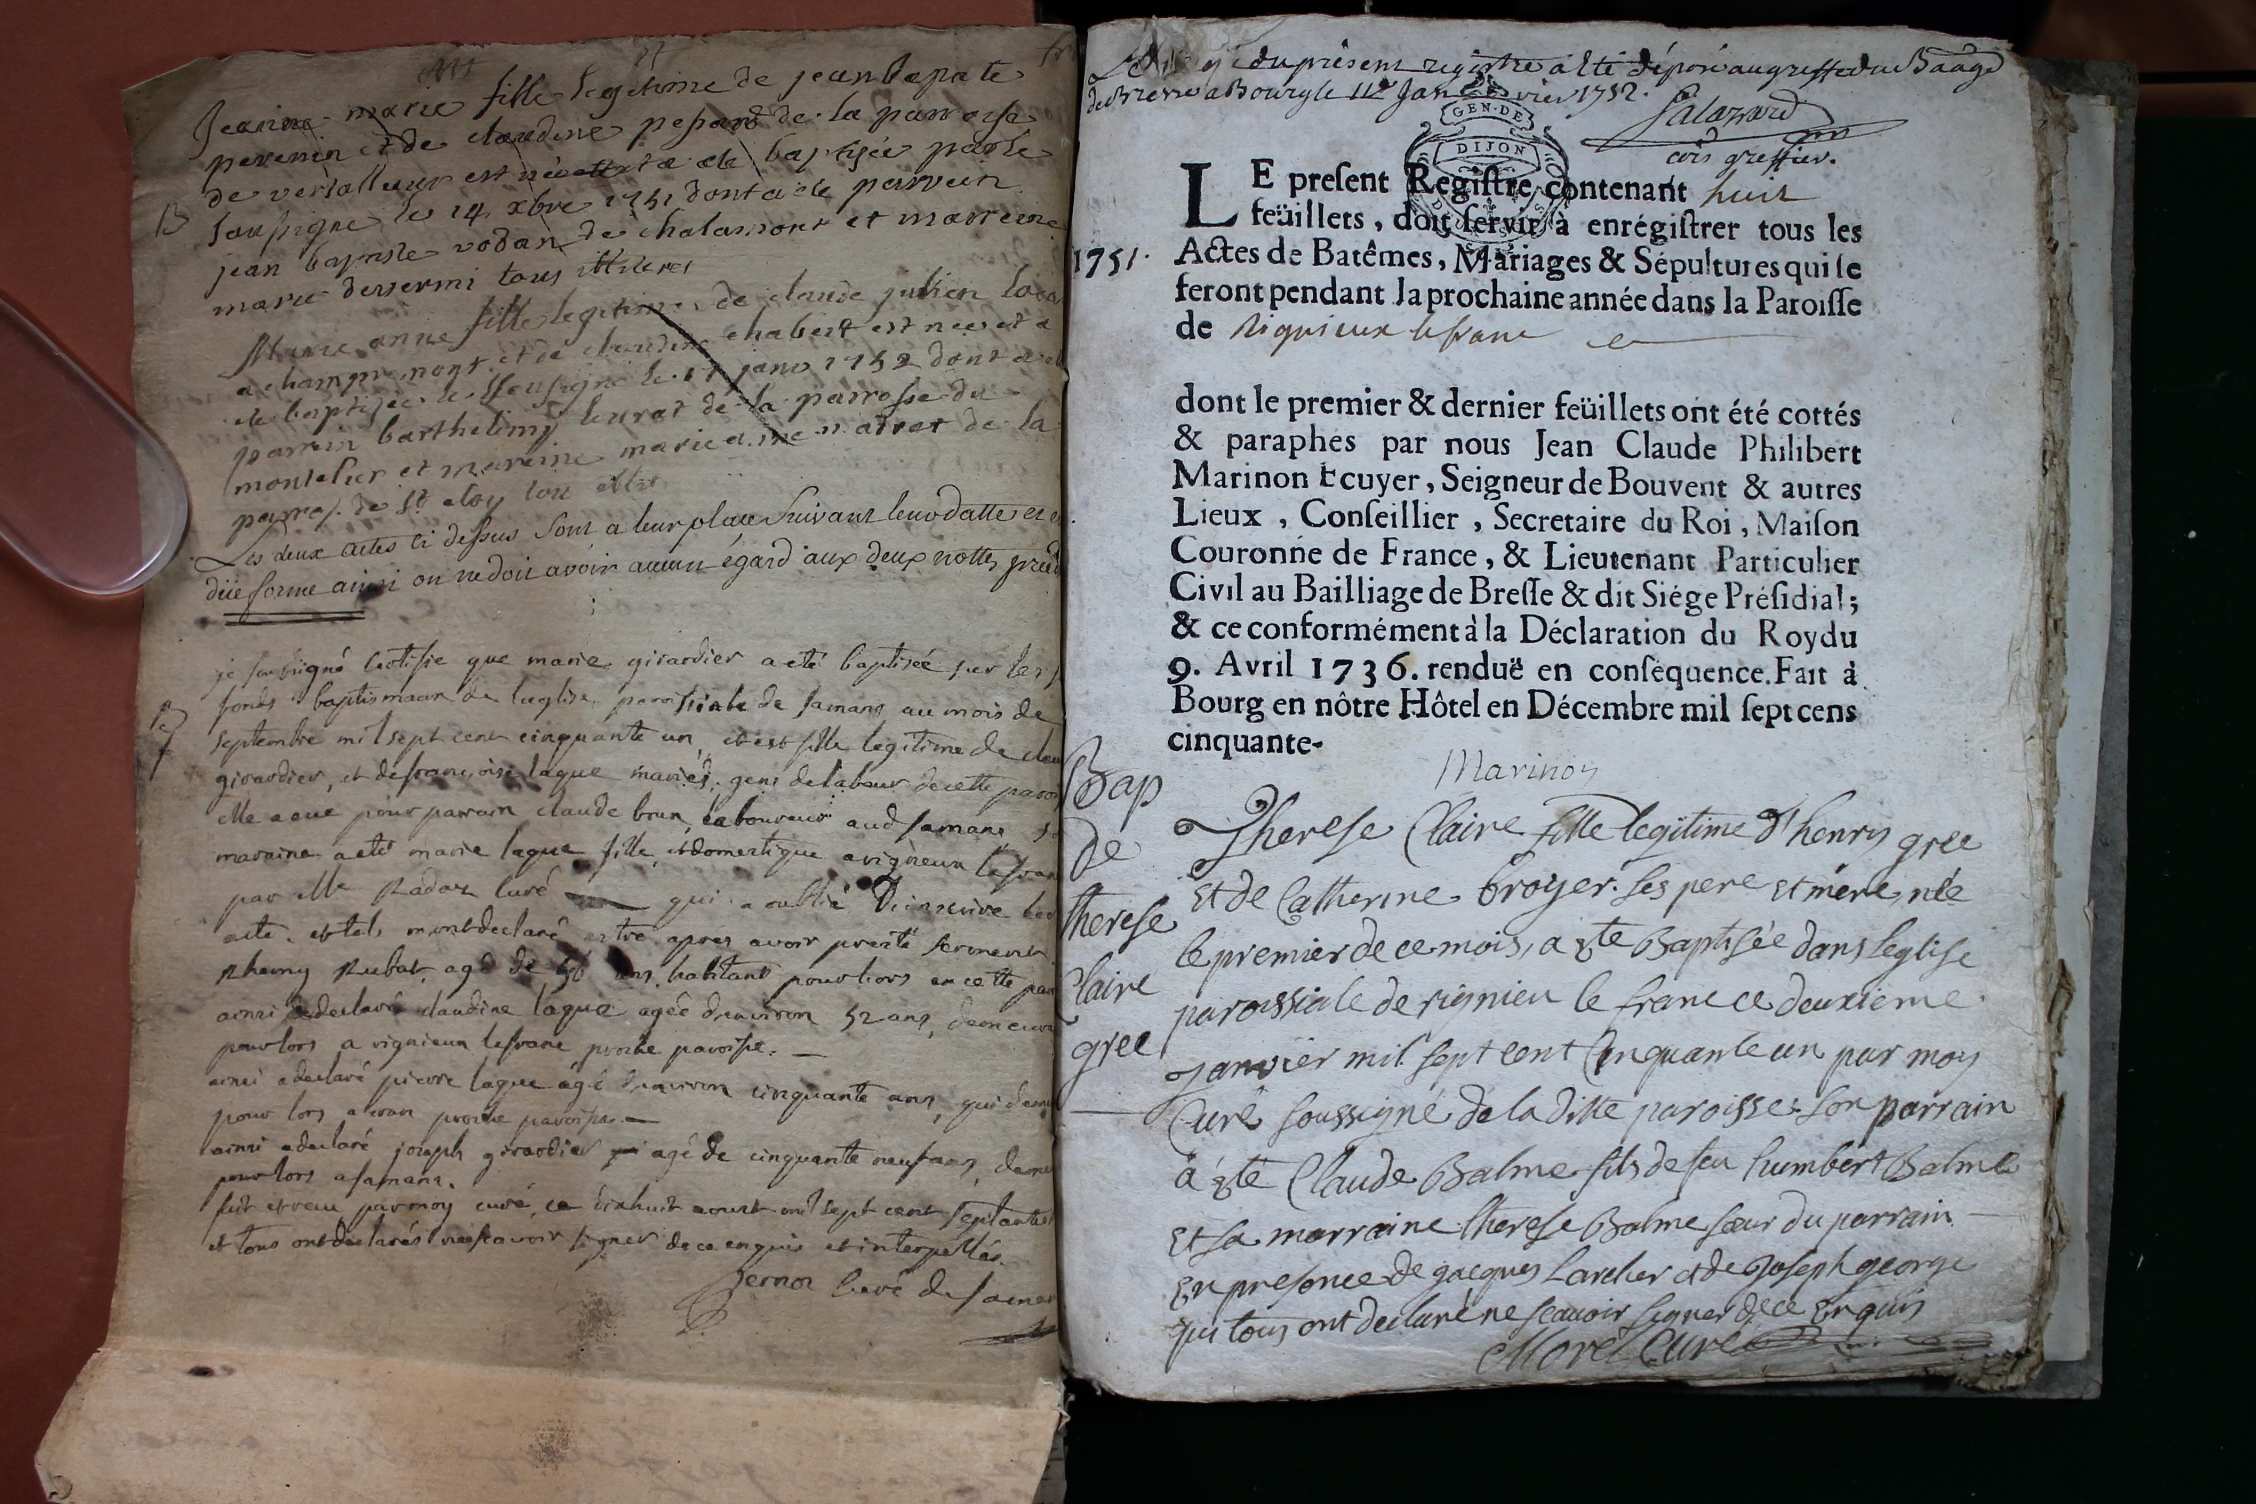 Jeanne marie fille legitime de jean bapate
perenin et de claudine pesant de la parroisse
de versailleur est née et a ete baptisée par le
soussigne le 14 xbre 1751 dont a ete parrein
B
jean baptiste vodan de chalamont et marreine
marie dessermi tous illiteres
Marie anne fille legitime de claude julien
a champremont et de claudine chabert est nee et a
ete baptisee le soussigne le 17 janv 1752 dont a
parrein barthelimy leurat de la parrosse du
montelier et mareine marie anne de la
parross. de St eloy tou
Les deux actes ci dessus sont a leur place suivant leur datte et
düe forme ainsi on ne doit avoir aucun égard aux deux nottes
je soussigné certifie que marie girardier a eté baptisée sur les
fonds baptismaux de leglise paroissiale de samans au mois de
septembre mil sept cent cinquante un, et est fille legitime de
girardier, et de francoise laque mariés, gens de labeur de cette
elle a eue pour parrain claude brun, laboureur aud samans
maraine a eté marie laque fille, et domestique a rigneux lefran
par Mr Radoz curé qui a oublié d'inscrire
acte. et tels m'ont declaré etre apres avoir presté serment
Rhemy Rubat, agé de 56 ans habitant pour lors en cette
ainsi a declaré claudine laque agée d'environ 52 ans, demeur
pour lors a rignieux lefranc proche paroisse.
ainsi a declaré pierre laque agé d'environ cinquante ans, qui
pour lors a proche paroisse.
ainsi a declaré joseph girardier agé de cinquante neuf ans,
pour lors a samans.
fait et recu par moy curé, ce dixhuit aoust mil sept cent septante
et tous ont declarés ne scavoir signer de ce enquis et interpellés.
Bernoz Curé de samans
du présent registre a été déposé au greffe du Baage
de Bresse a Bourg le 11e Janvier 1752.
Salazard
cõis greffier.
GEN·DE
DIJON
1751.
LE present Registre contenant huit
feüillets, doit servir à enrégistrer tous les
Actes de Batêmes, Mariages & Sépultures qui se
feront pendant la prochaine année dans la Paroisse
de Rignieux lefranc
dont le premier & dernier feüillets ont été cottés
& paraphés par nous Jean Claude Philibert
Marinon Ecuyer, Seigneur de Bouvent & autres
Lieux, Conseillier, Secretaire du Roi, Maison
Couronne de France, & Lieutenant Particulier
Civil au Bailliage de Bresse & dit Siége Présidial;
& ce conformément à la Déclaration du Roy du
9. Avril 1736. renduë en conséquence. Fait à
Bourg en nôtre Hôtel en Décembre mil sept cens
cinquante-
Marinon
Bap
de
therese
Claire
gree
Therese Claire fille legitime d'henry gree
et de Catherine broyer ses pere et mere, née
le premier de ce mois, a éte Baptisée dans leglise
paroissiale de rignieu le franc ce deuxieme
janvier mil sept cent Cinquante un par moy
Curé soussigné de la ditte paroisse: son parrain
a éte Claude Balme fils de feu humbert Balme
et sa marraine therese Balme sœur du parrain
En presence de jacques Larcher et de Joseph george
qui tous ont declaré ne scavoir signer de ce Enquis
Morel Curé